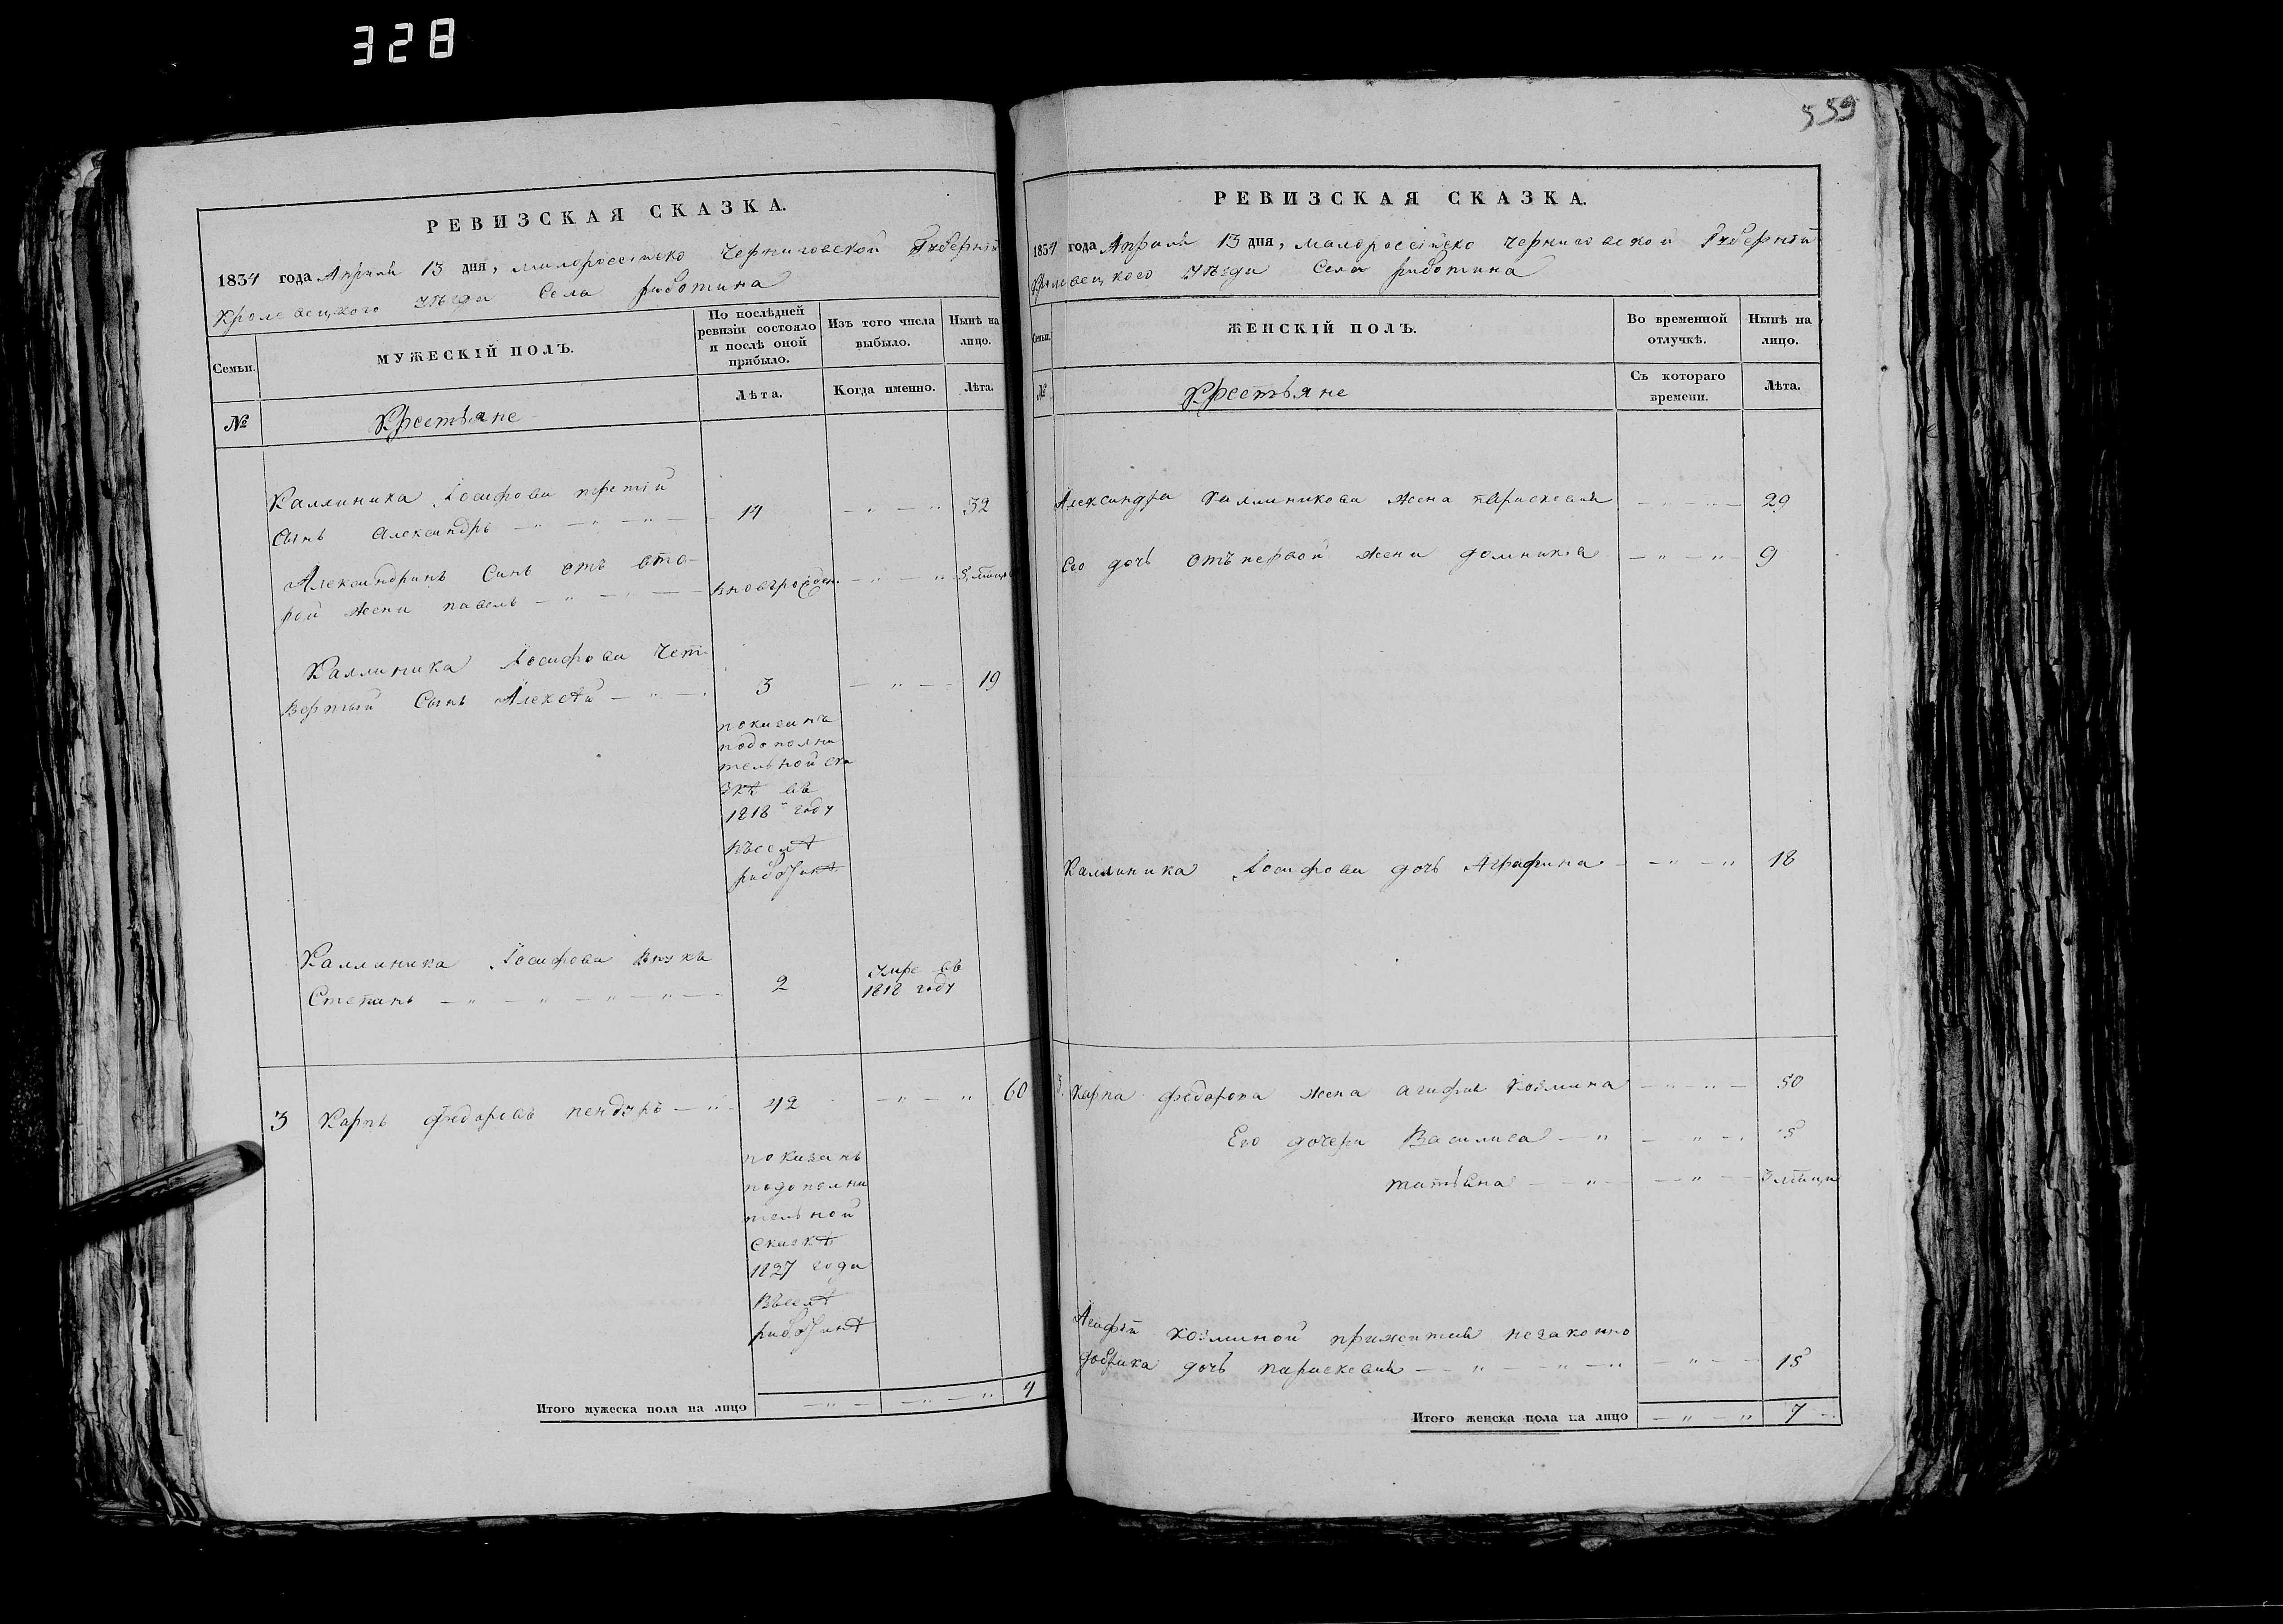 328
559
РЕВИЗСКАЯ СКАЗКА.
1834 года Априля 13 дня, малороссійско Черниговской Губерніи
Кролевецкого уезда Села работина
Семьи.
МУЖЕСКІЙ ПОЛЪ.
По послѣдней
ревизіи состояло
и послѣ оной
прибыло.
Изъ того числа
выбыло.
Нынѣ на
лицо.
№
Крестьяне
Лѣта.
Когда именно.
Лѣта.
Каллиника Іосифова третій
Сынъ Александръ — " — " — " — 14 — " — " 32
Александринъ Синъ отъ вто-
рой жени павелъ — " — " — вновьрожден. — " — " 5 мѣсяц
Каллиника Іосифова Чет-
вертый Сынъ Алексѣй — " — 3 — " — 19
показанъ
подополни
тельной ска
зкѣ въ
1818 году
въселѣ
работинѣ
Каллиника Іосифова Внукъ
Степанъ — " — " — " — " — 2 умре въ
1818 году
3 Карпъ Федоровъ пендуръ — " — 42 — " — " 60
показанъ
подополни
тельной
сказкѣ
1827 года
Въселѣ
работинѣ
Итого мужеска пола на лицо — " — — " — " 4
РЕВИЗСКАЯ СКАЗКА.
1834 года Априля 13 дня, малороссійско Черниговской Губерніи
Кролевецкого уезда Села работина
Семьи.
ЖЕНСКІЙ ПОЛЪ.
Во временной
отлучкѣ.
Нынѣ на
лицо.
№
Крестьяне
Съ котораго
времени.
Лѣта.
Александра Каллиникова жена параскевия — " — 29
Его дочь отъ первой жени домникія — " — " — 9
Каллиника Іосифова дочь Агафина — — " — " 18
3. Карпа федорова жена агафія Козмина — " — " — 50
Его дочери Василиса — " — " — 5
татьяна — " — — " — 3 мѣсяци
Агафіи козминой прижитая незаконно
дочь параскевия — " — " — " — " — 15
Итого женска пола на лицо — " — " 7